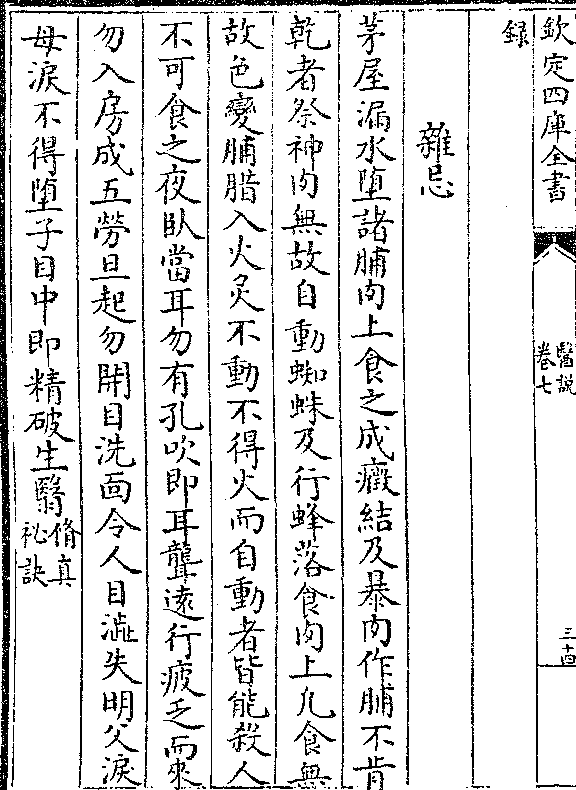 欽定四庫全書
醫說
卷七
三十四
録
雜忌
茅屋漏水墮諸脯肉上食之成癥結及暴肉作脯不肯
乾者祭神肉無故自動蜘蛛及行蜂落食肉上凡食無
故色變脯腊入火炙不動不得火而自動者皆能殺人
不可食之夜臥當耳勿有孔吹即耳聾遠行疲乏而來
勿入房成五勞旦起勿開目洗面令人目澁失明父淚
母淚不得墮子目中即精破生翳
脩真
祕訣